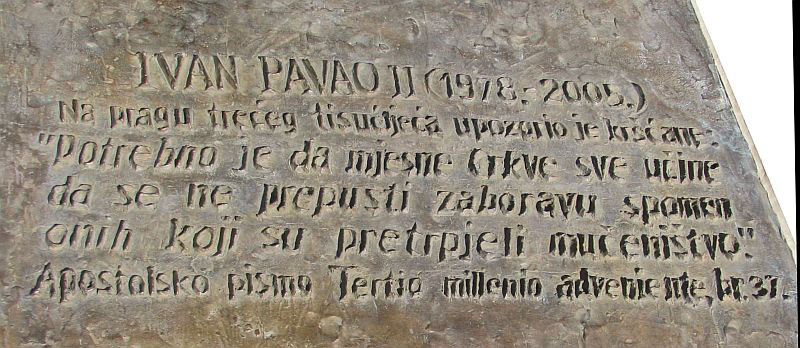 IVAN PAVAO II (1978.-2005.)
Na pragu trećeg tisućljeća upozorio je kršćane:
"Potrebno je da mjesne Crkve sve učine
da se ne prepusti zaboravu spomen
onih koji su pretrpjeli mučeništvo".
Apostolsko pismo Tertio millenio adveniente, br. 37.